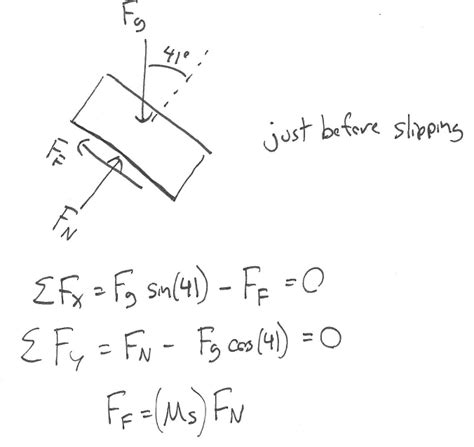 Fg
41°
just before slipping
F_F
F_N
ΣF_x = F_g sin(41) - F_F = 0
ΣF_y = F_N - F_g cos(41) = 0
F_F = (μ_s) F_N